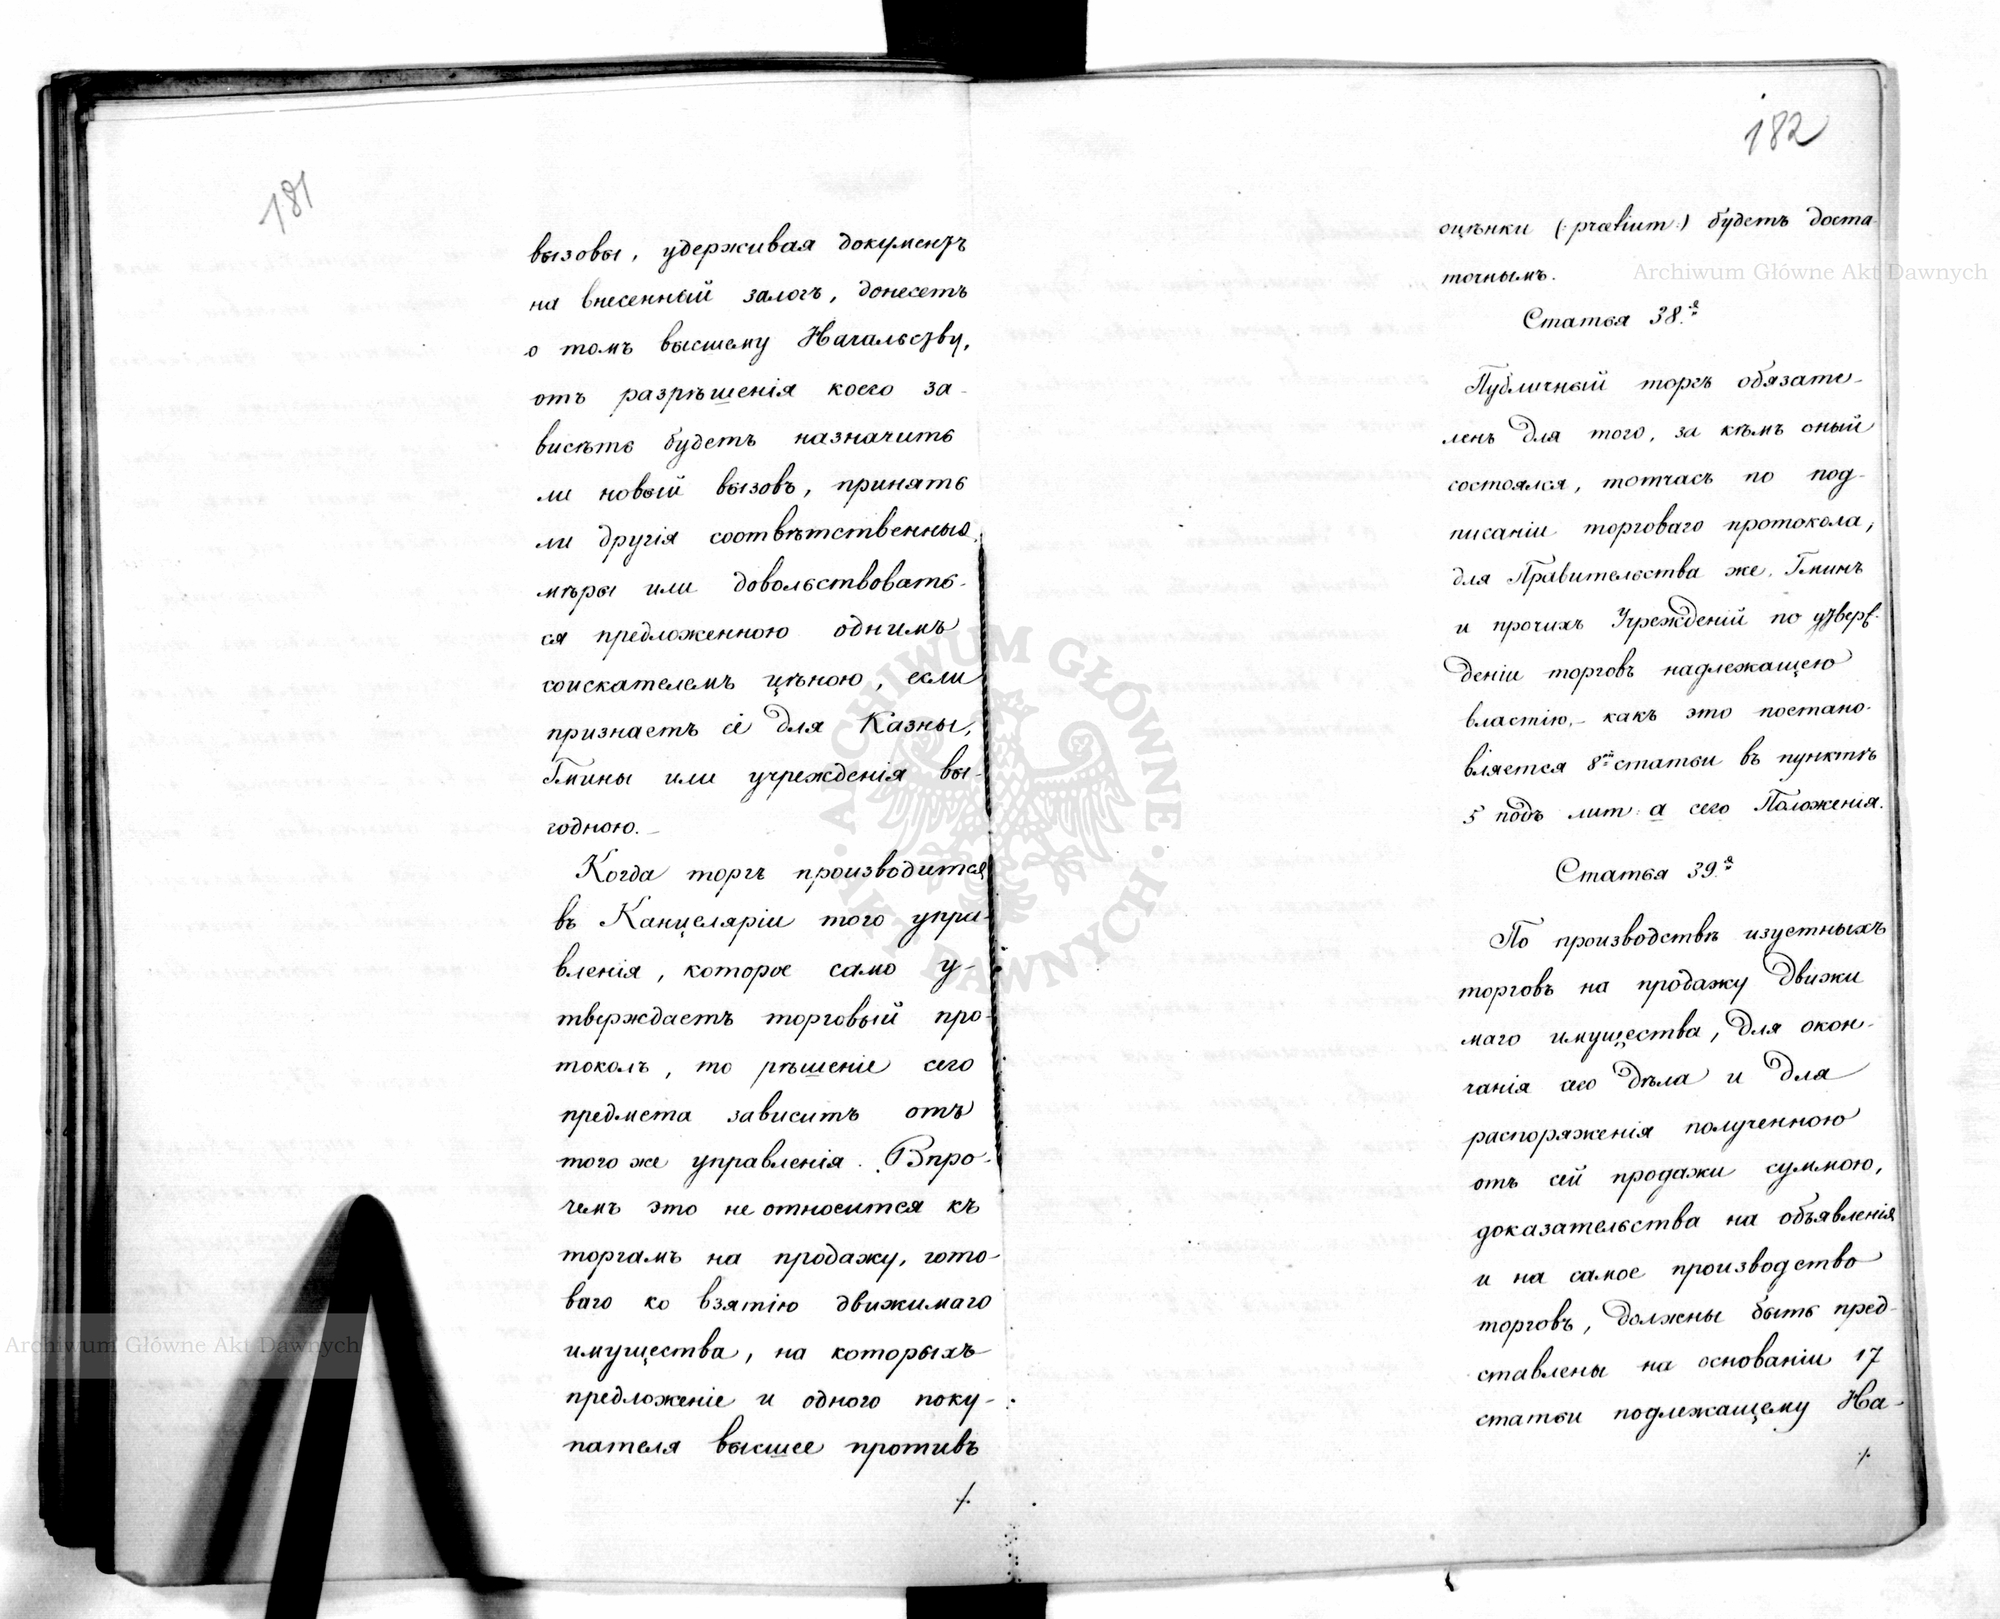 181
вызовы, удерживая документъ
на внесенный залогъ, донесетъ
о томъ высшему Начальству,
отъ разрѣшенія коего за-
висѣть будетъ назначить
ли новый вызовъ, принять
ли другія соотвѣтственныя
мѣры или довольствовать-
ся предложенною однимъ
соискателемъ цѣною, если
признаетъ её для Казны,
Гмины или учрежденія вы-
годною.-
Когда торгъ производится
въ Канцеляріи того упра-
вленія, которое само у-
тверждаетъ торговый про-
токолъ, то рѣшеніе сего
предмета зависитъ отъ
того же управленія. Впро-
чемъ это не относится къ
торгамъ на продажу, гото-
ваго ко взятію движимаго
имущества, на которыхъ
предложеніе и одного поку-
пателя высшее противъ
./.
182
оцѣнки (: prætium :) будетъ доста-
точнымъ.
Статья 38.я
Публичный торгъ обязате-
ленъ для того, за кѣмъ оный
состоялся, тотчасъ по под-
писаніи торговаго протокола,
для Правительства же, Гминъ
и прочихъ Учрежденій по утверж-
деніи торговъ надлежащею
властію,- какъ это постано-
вляется 8й статьи въ пунктѣ
5 подъ лит: а сего Положенія.
Статья 39.я
По производствѣ изустныхъ
торговъ на продажу движи
маго имущества, для окон-
чанія сего дѣла и для
распоряженія полученною
отъ сей продажи суммою,
доказательства на объявленія
и на самое производство
торговъ, должны быть пред-
ставлены на основаніи 17
статьи подлежащему На-
./.
Archiwum Główne Akt Dawnych
Archiwum Główne Akt Dawnych
ARCHIWUM GŁÓWNE · AKT DAWNYCH ·